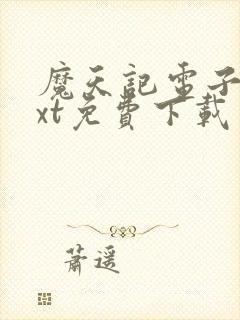 魔天記電子
xt免費下載
蕭遥